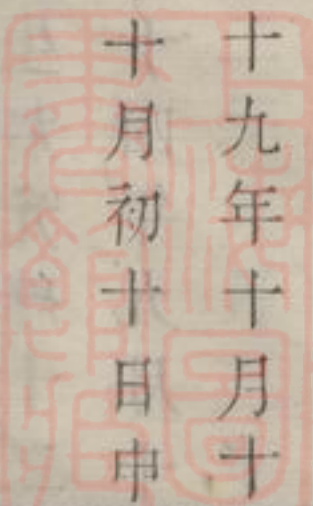 十九年十月十
十月初十日申